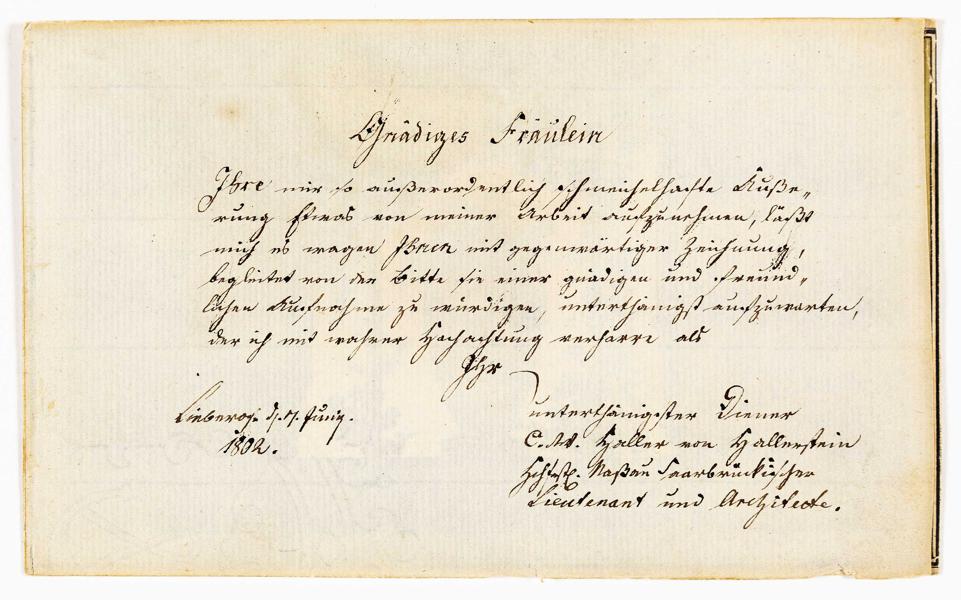 Gnädiges Fräulein
Ihre mir so außerordentlich schmeichelhafte Äuße„
rung Etwas von meiner Arbeit aufzunehmen, läßt
mich es wagen Ihnen mit gegenwärtiger Zeichnung,
begleitet von der Bitte sie einer gnädigen und freund„
lichen Aufnahme zu würdigen, unterthänigst aufzuwarten,
der ich mit wahrer Hochachtung verharre als
Ihr
unterthänigster Diener
C. W. Haller von Hallerstein
Hchfstl. Naßau Saarbrückischer
Lieutenant und Architecte.
Juny.
1802.